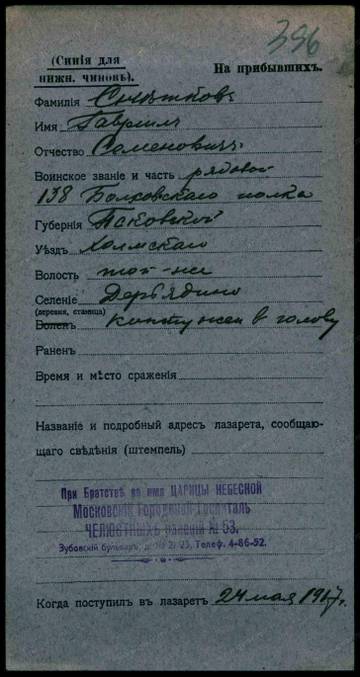 396
(Синія для
нижн. чиновъ).
На прибывшихъ.
Фамилія Снѣтковъ
Имя Гавріилъ
Отчество Семеновичъ
Воинское званіе и часть рядовой
138 Болховскаго полка
Губернія Псковской
Уѣздъ Холмскаго
Волость той-же
Селеніе
(деревня, станица)
Боленъ контужен в голову
Раненъ
Время и мѣсто сраженія
Названіе и подробный адресъ лазарета, сообщаю-
щаго свѣдѣнія (штемпель)
При Братствѣ во имя ЦАРИЦЫ НЕБЕСНОЙ
Московскій Городской Госпиталь
ЧЕЛЮСТНЫХЪ раненій № 53.
Зубовскій бульваръ, д. № 23, Телеф. 4-86-52.
Когда поступилъ въ лазаретъ 24 мая 1917 г.